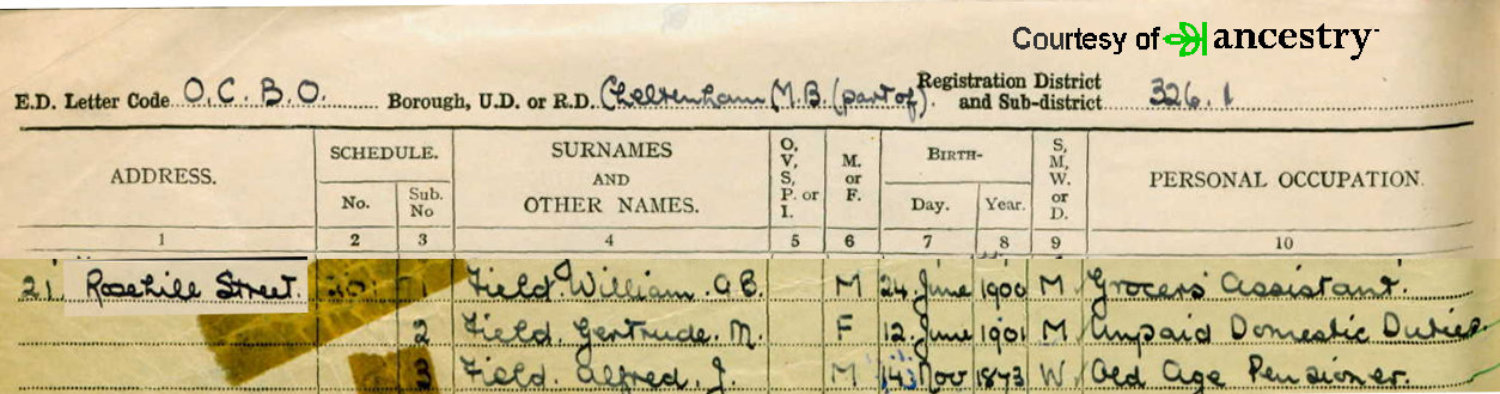 Courtesy of ancestry
E.D. Letter Code O.C.B.O. Borough, U.D. or R.D. Cheltenham M.B. (part of). Registration District and Sub-district 326.1
ADDRESS. SCHEDULE. No. Sub. No SURNAMES AND OTHER NAMES. O, V, S, P. or I. M. or F. BIRTH- Day. Year. S, M, W. or D. PERSONAL OCCUPATION.
1 2 3 4 5 6 7 8 9 10
21, Rosehill Street. 1 Field. William. G B. M 24 June 1900 M Grocers Assistant.
2 Field. Gertrude. M. F 12. June 1901 M Unpaid Domestic Duties.
3 Field. Alfred. J. M 14 Nov 1873 W Old Age Pensioner.